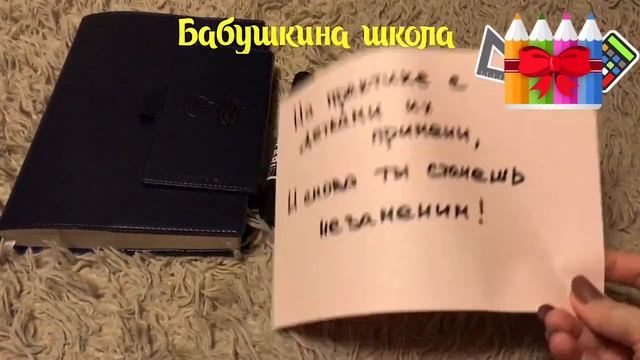 Бабушкина школа
На практике с
детками их
примени,
И снова ты станешь
незаменим!